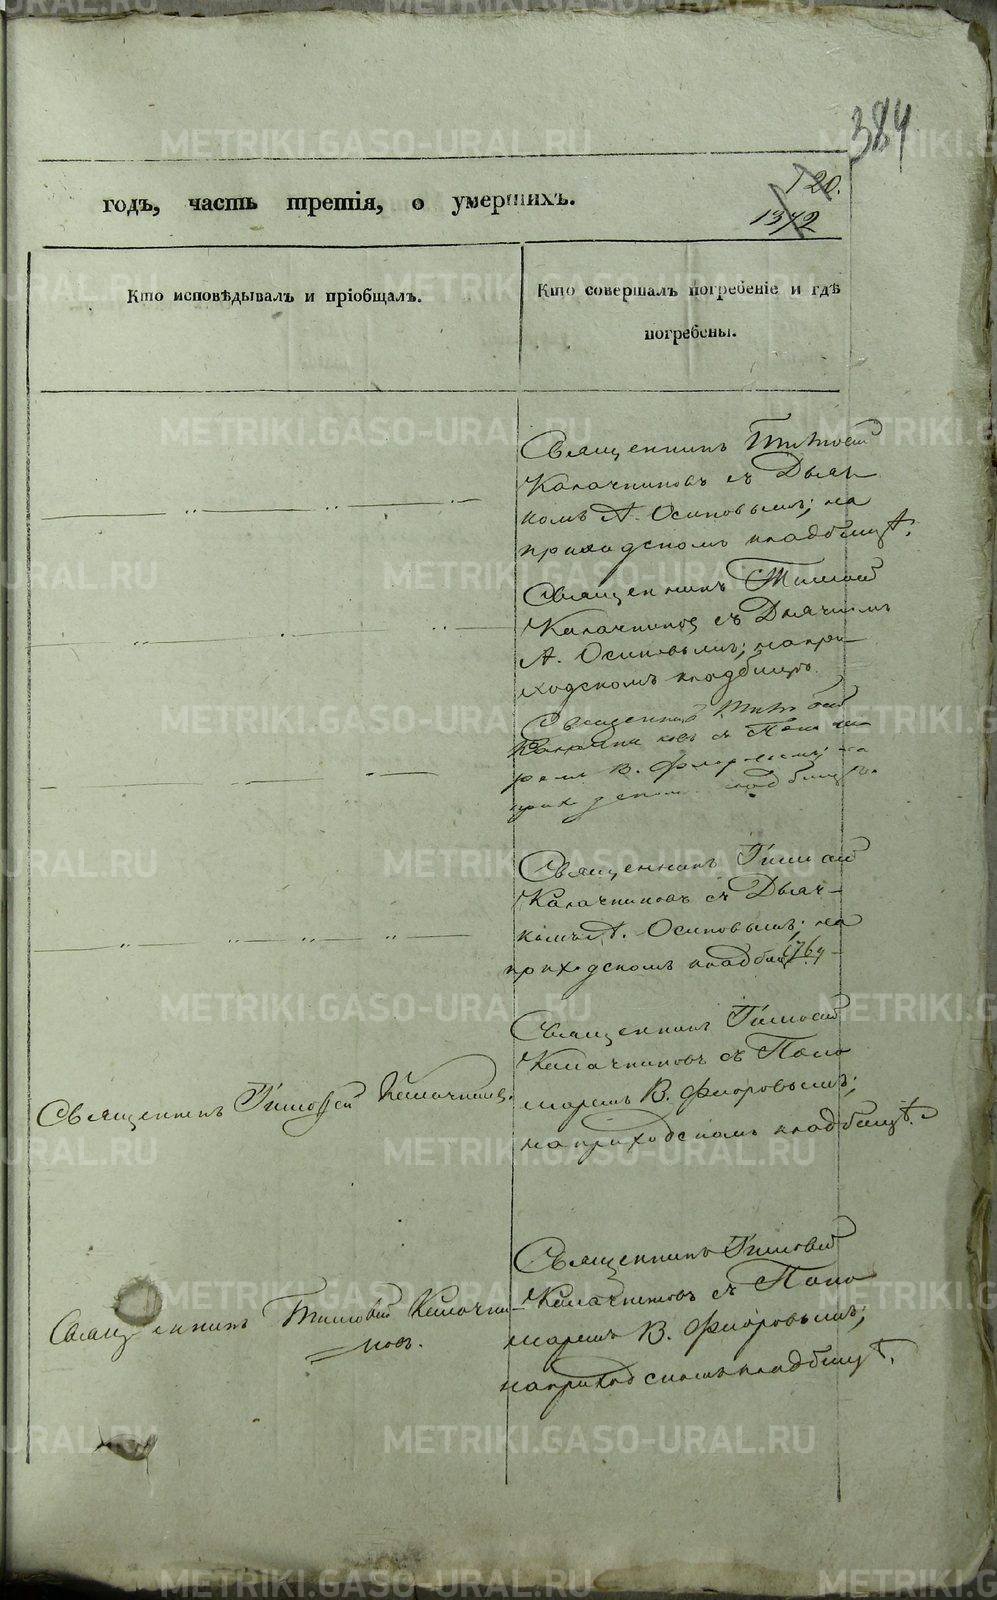 384
120.
1372
годъ, часть третія, о умершихъ.
Кто исповѣдывалъ и пріобщалъ.
Кто совершалъ погребеніе и гдѣ
погребены.
Священникъ Тимоѳей
Калачниковъ съ Дьяч-
комъ А. Осиповымъ; на
приходскомъ кладбищѣ.
Священникъ Тимоѳей
Калачниковъ съ Дьячкомъ
А. Осиповымъ; на при-
ходскомъ кладбищѣ.
Священникъ Тимоѳей
Калачниковъ съ Поно-
ремъ В. Флоровымъ; на
приходскомъ кладбищѣ.
Священникъ Тимоѳей
Калачниковъ съ Дьяч-
комъ А. Осиповымъ; на
приходскомъ кладбищѣ
Священникъ Тимоѳей Калачниковъ.
Священникъ Тимоѳей
Калачниковъ съ Поно
маремъ В. Флоровымъ;
на приходскомъ кладбищѣ.
Священникъ Тимоѳей Калачни-
ковъ.
Священникъ Тимоѳей
Калачниковъ съ Поно
маремъ В. Флоровымъ;
на приходскомъ кладбищѣ.
METRIKI.GASO-URAL.RU